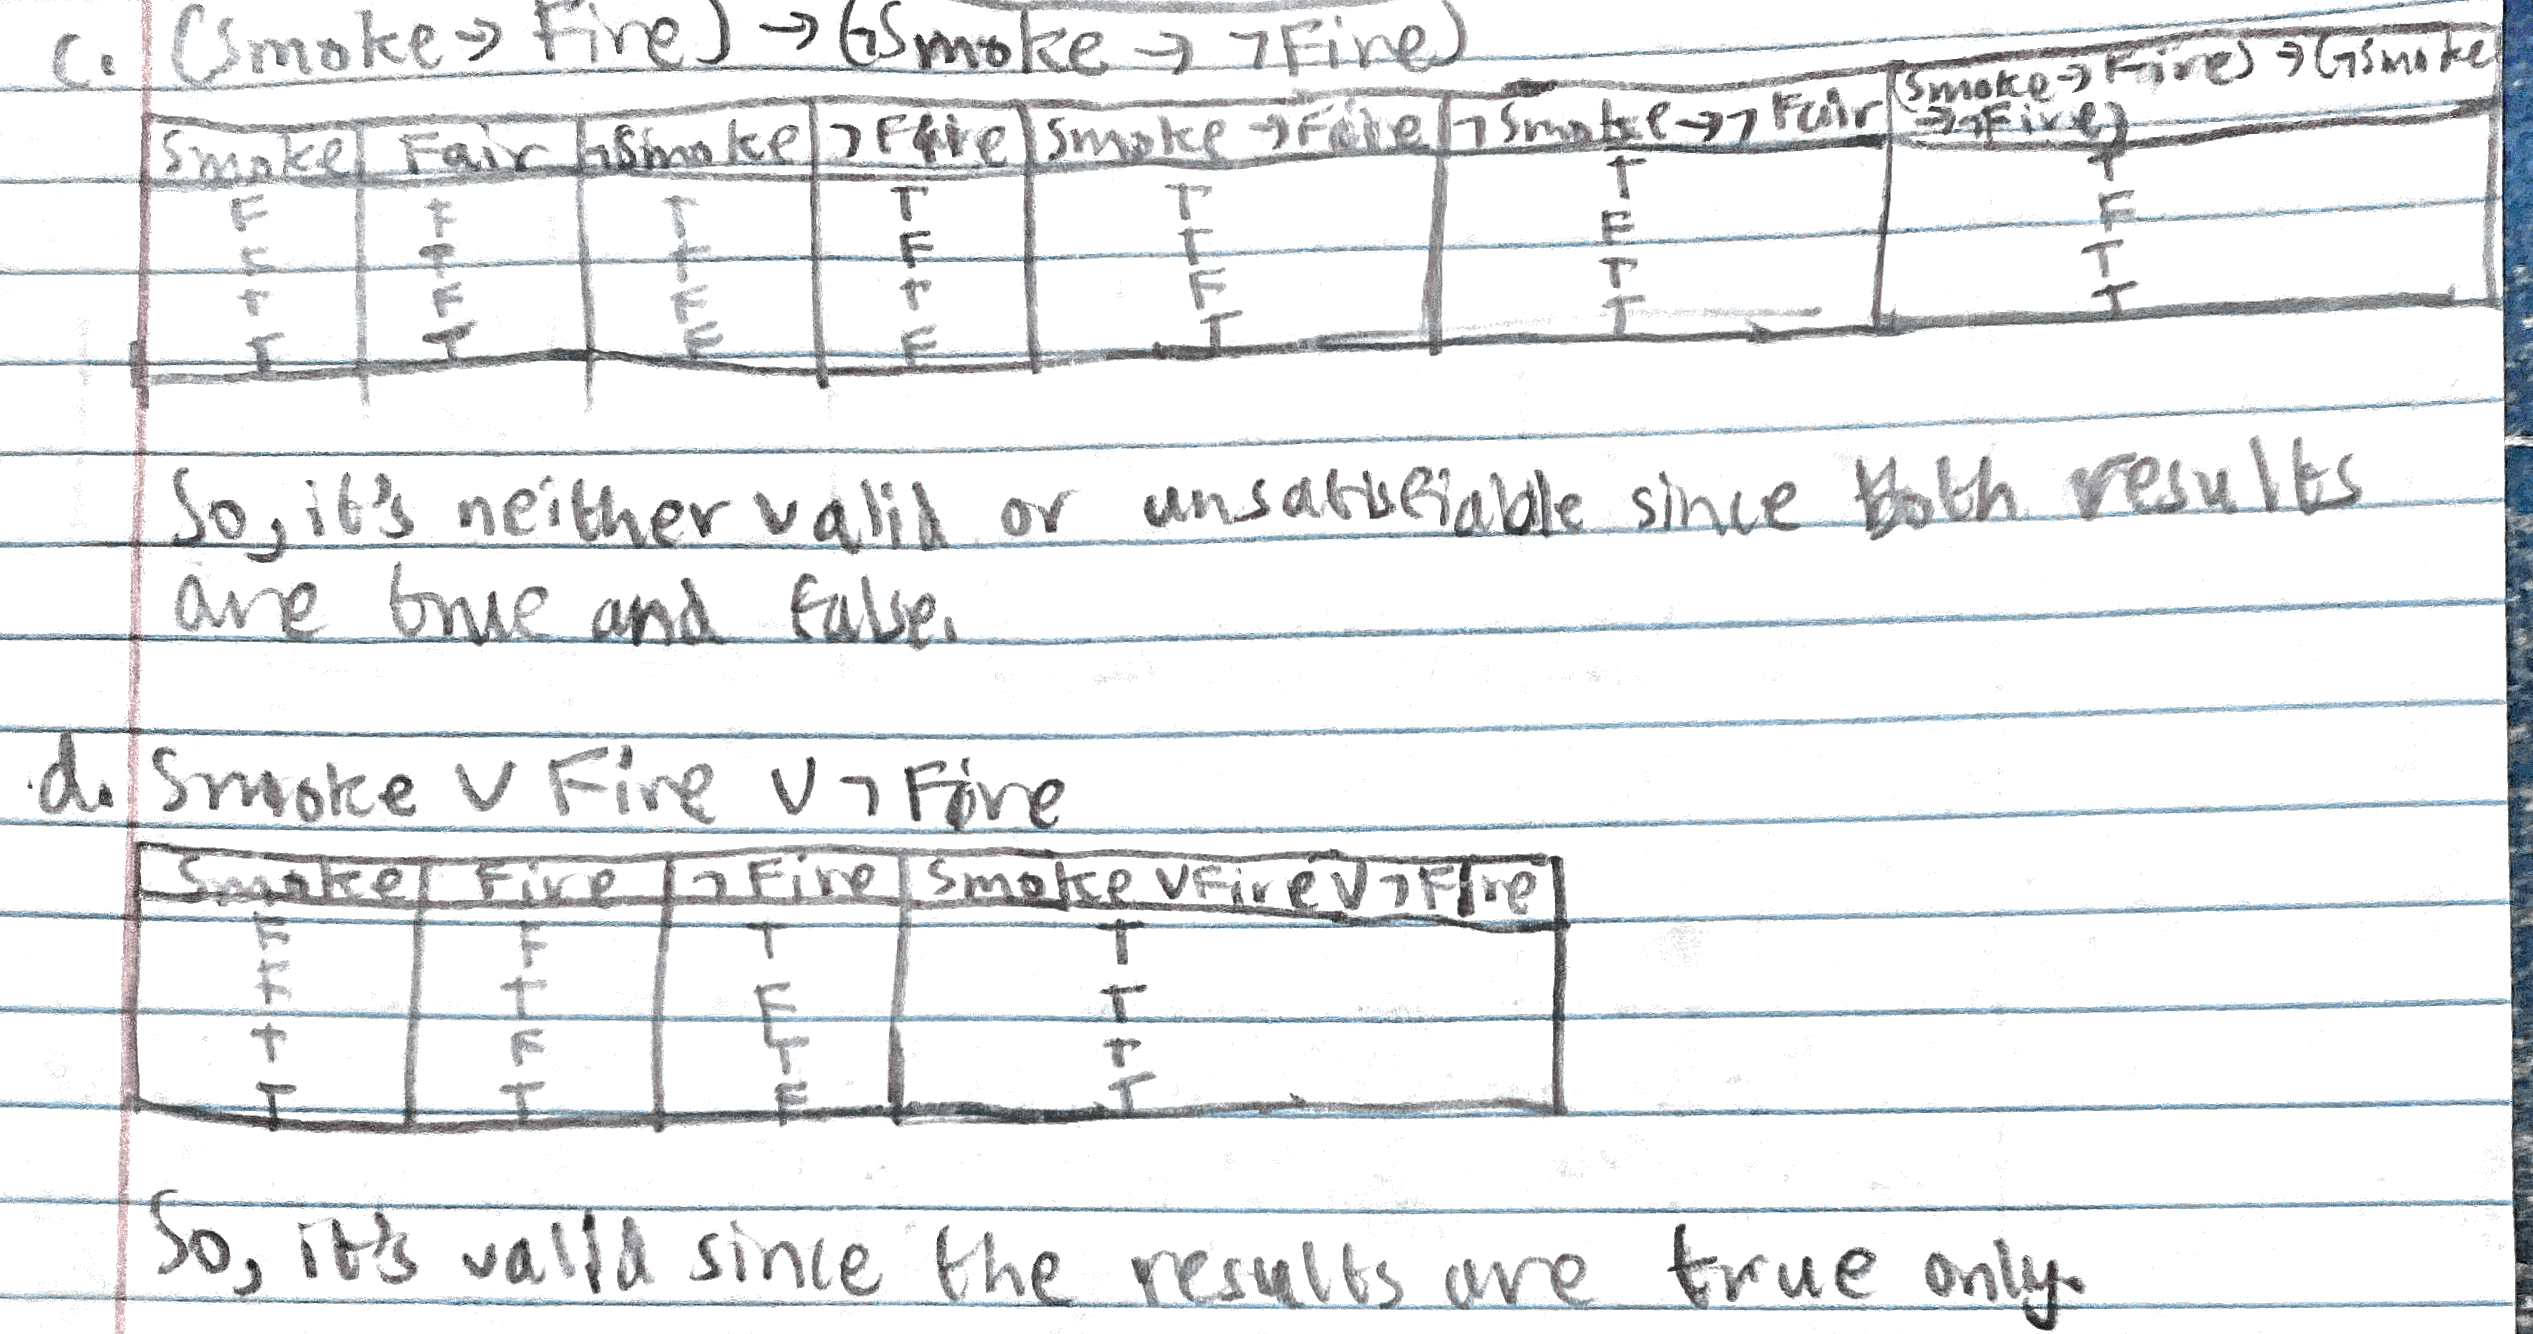 c. (Smoke → Fire) → (¬Smoke → ¬Fire)
Smoke Fair ¬Smoke ¬Fire Smoke → Fire ¬Smoke → ¬Fair (Smoke → Fire) → (¬Smoke
→ ¬Fire)
F F T T T T T
F T T F T F F
T F F T F T T
T T F F T T T
So, it's neither valid or unsatisfiable since both results
are true and false.
d. Smoke ∨ Fire ∨ ¬Fire
Smoke Fire ¬Fire Smoke ∨ Fire ∨ ¬Fire
F F T T
F T F T
T F T T
T T F T
So, it's valid since the results are true only.